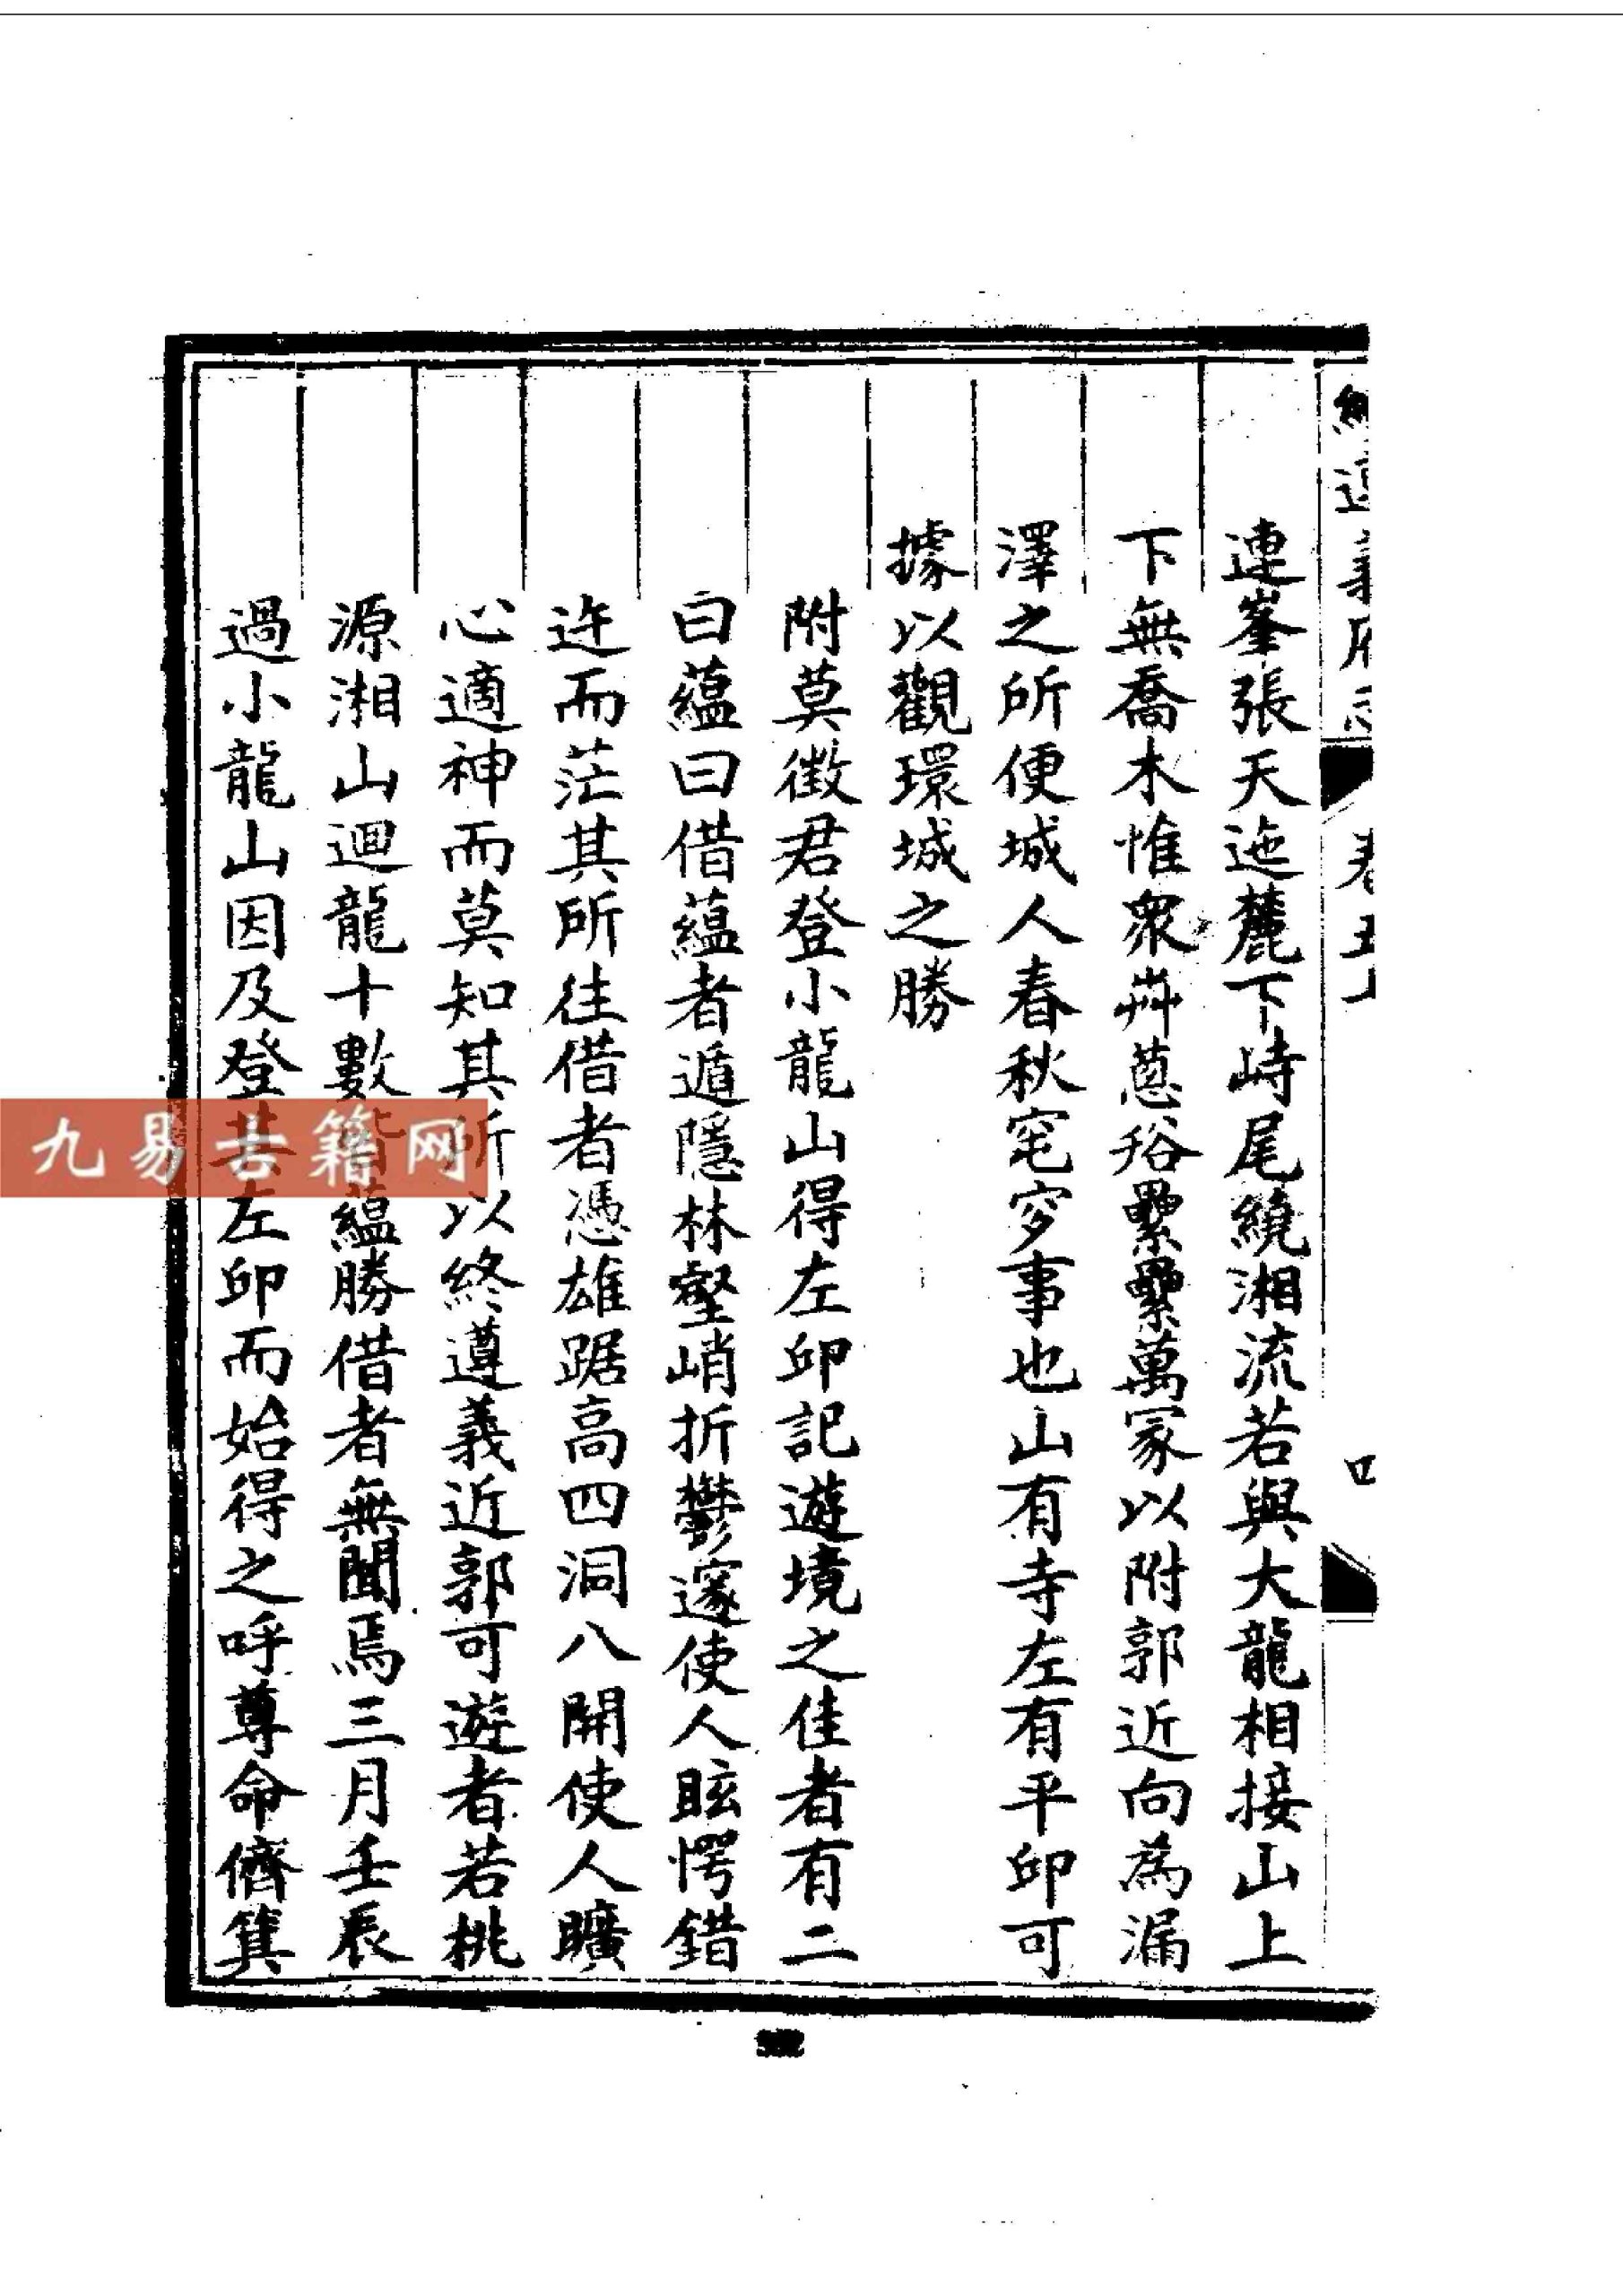 連峯張天迤麓下峙尾繞湘流若與大龍相接山上
下無喬木惟衆艸蔥裕纍纍萬冢以附郭近向為漏
澤之所便城人春秋窀穸事也山有寺左有平卬可
據以觀環城之勝
附莫徵君登小龍山得左卬記遊境之佳者有二
曰蘊曰借蘊者遁隱林壑峭折鬱邃使人眩愕錯
迕而茫其所往借者憑雄踞高四洞八開使人曠
心適神而莫知其所以終遵義近郭可遊者若桃
源湘山迴龍十數皆蘊勝借者無聞焉三月壬辰
過小龍山因及登其左卬而始得之呼尊命儕箕
卷五
四
九易古籍网